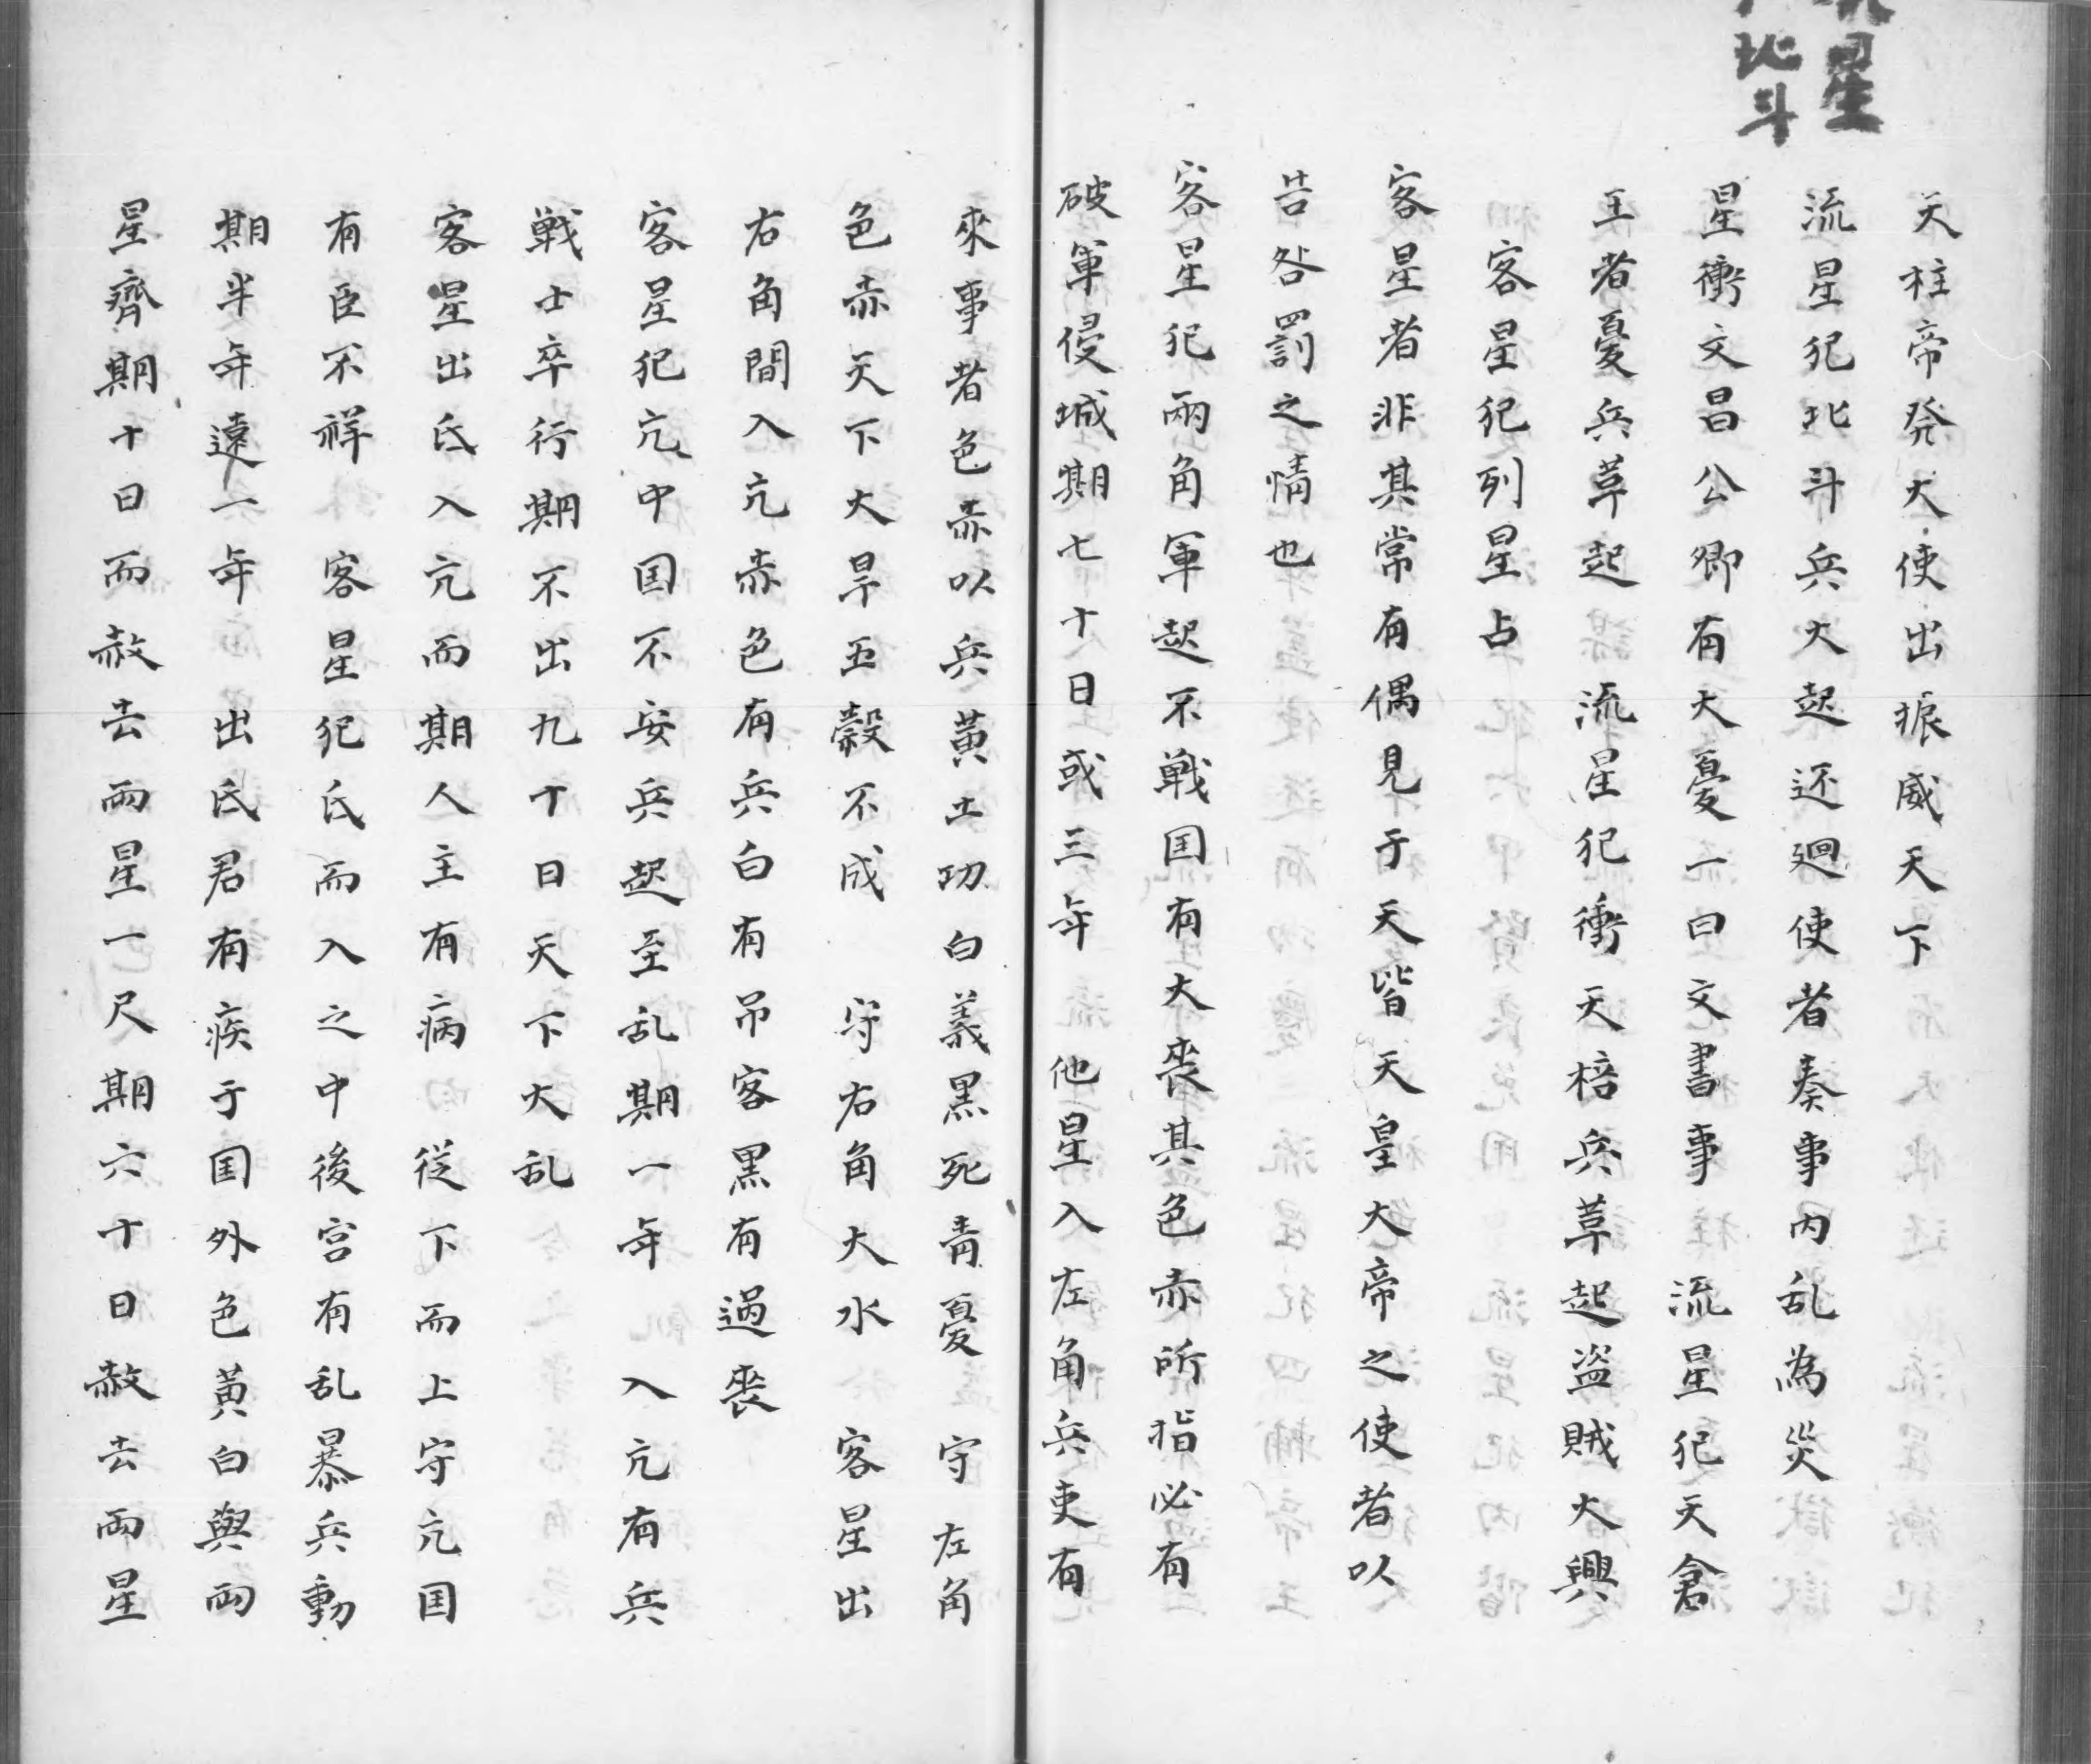 星
北斗
天柱帝発大使出振威天下
流星犯北斗兵大起还廻使者奏事内乱為災
星衝文昌公卿有大憂一曰文書事　流星犯天倉
王者憂兵草起　流星犯衝天棓兵草起盗賊大興
客星犯列星占
客星者非其常有偶見于天皆天皇大帝之使者以
告咎罰之情也
客星犯兩角軍起不戦国有大喪其色赤所指必有
破軍侵城期七十日或三年　他星入左角兵吏有
來事者色赤以兵黄土功白義黒死青憂　守左角
色赤天下大旱五穀不成　守右角大水　客星出
右角間入亢赤色有兵白有吊客黒有過喪
客星犯亢中国不安兵起至乱期一年　入亢有兵
戦士卒行期不出九十日天下大乱
客星出氐入亢而期人主有病　従下而上守亢国
有臣不祥　客星犯氐而入之中後宮有乱暴兵動
期半年遠一年　出氐君有疾于国外色黄白與両
星齊期十日而赦去両星一尺期六十日赦去両星